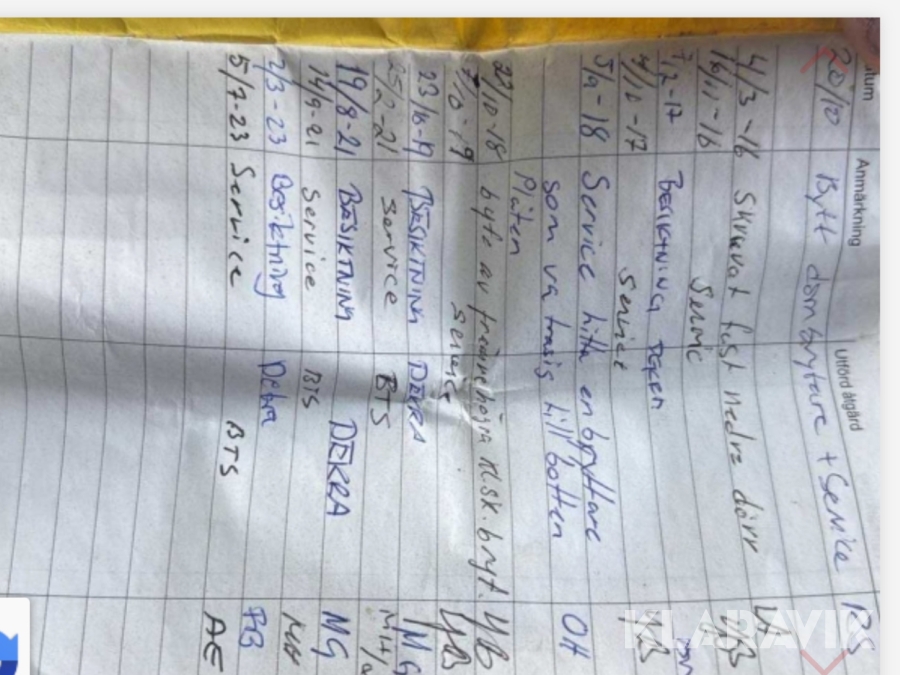 Datum Anmärkning Utförd åtgärd
20/10 Bytt dörrbrytare + Service PS
4/3 -16 Skruvat fast nedre dörr
16/11 -16 Service
7/2 -17 BESIKTNING DEKRA
4/10 -17 Service
5/9 -18 Service hitta en bryttare OH
som va trasig till botten
Plåten
22/10 -18 byte av främre högra klsk. bryt. YB
7/10 -19 Service YB
23/10-19 BESIKTNING DEKRA MG
25/2 -21 Service BTS
19/8-21 BESIKTNING DEKRA MG
14/9-21 Service BTS
2/3-23 Besiktning Dekra
5/7-23 Service BTS AE
KLARAVIK